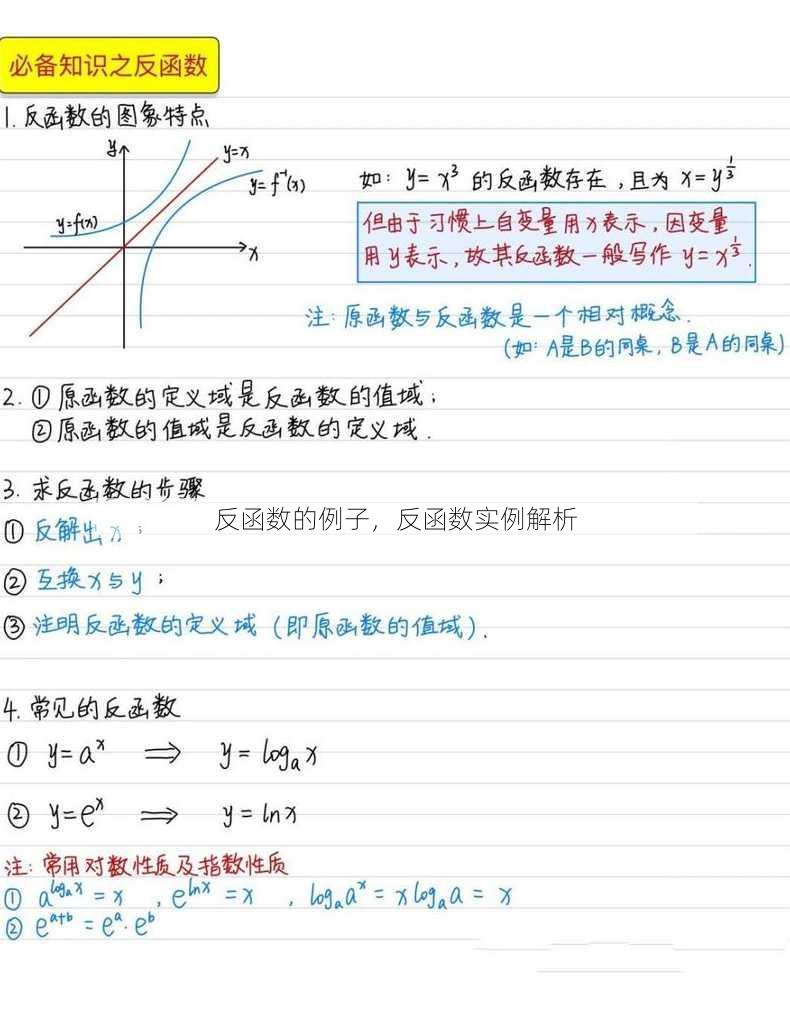 必备知识之反函数
1. 反函数的图象特点
y
y=x
y=f⁻¹(x)
y=f(x)
x
如: y=x³ 的反函数存在,且为 x=y^{1/3}
但由于习惯上自变量用x表示,因变量
用y表示,故其反函数一般写作 y=x^{1/3}.
注: 原函数与反函数是一个相对概念.
(如: A是B的同桌, B是A的同桌)
2. ①原函数的定义域是反函数的值域;
②原函数的值域是反函数的定义域.
3. 求反函数的步骤
反函数的例子，反函数实例解析
① 反解出x;
② 互换x与y;
③ 注明反函数的定义域(即原函数的值域).
4. 常见的反函数
① y=aˣ ⟹ y=logₐx
② y=eˣ ⟹ y=lnx
注: 常用对数性质及指数性质
① a^{logₐx}=x , e^{lnx}=x , logₐaˣ=xlogₐa=x
② e^{a+b}=e^a·e^b